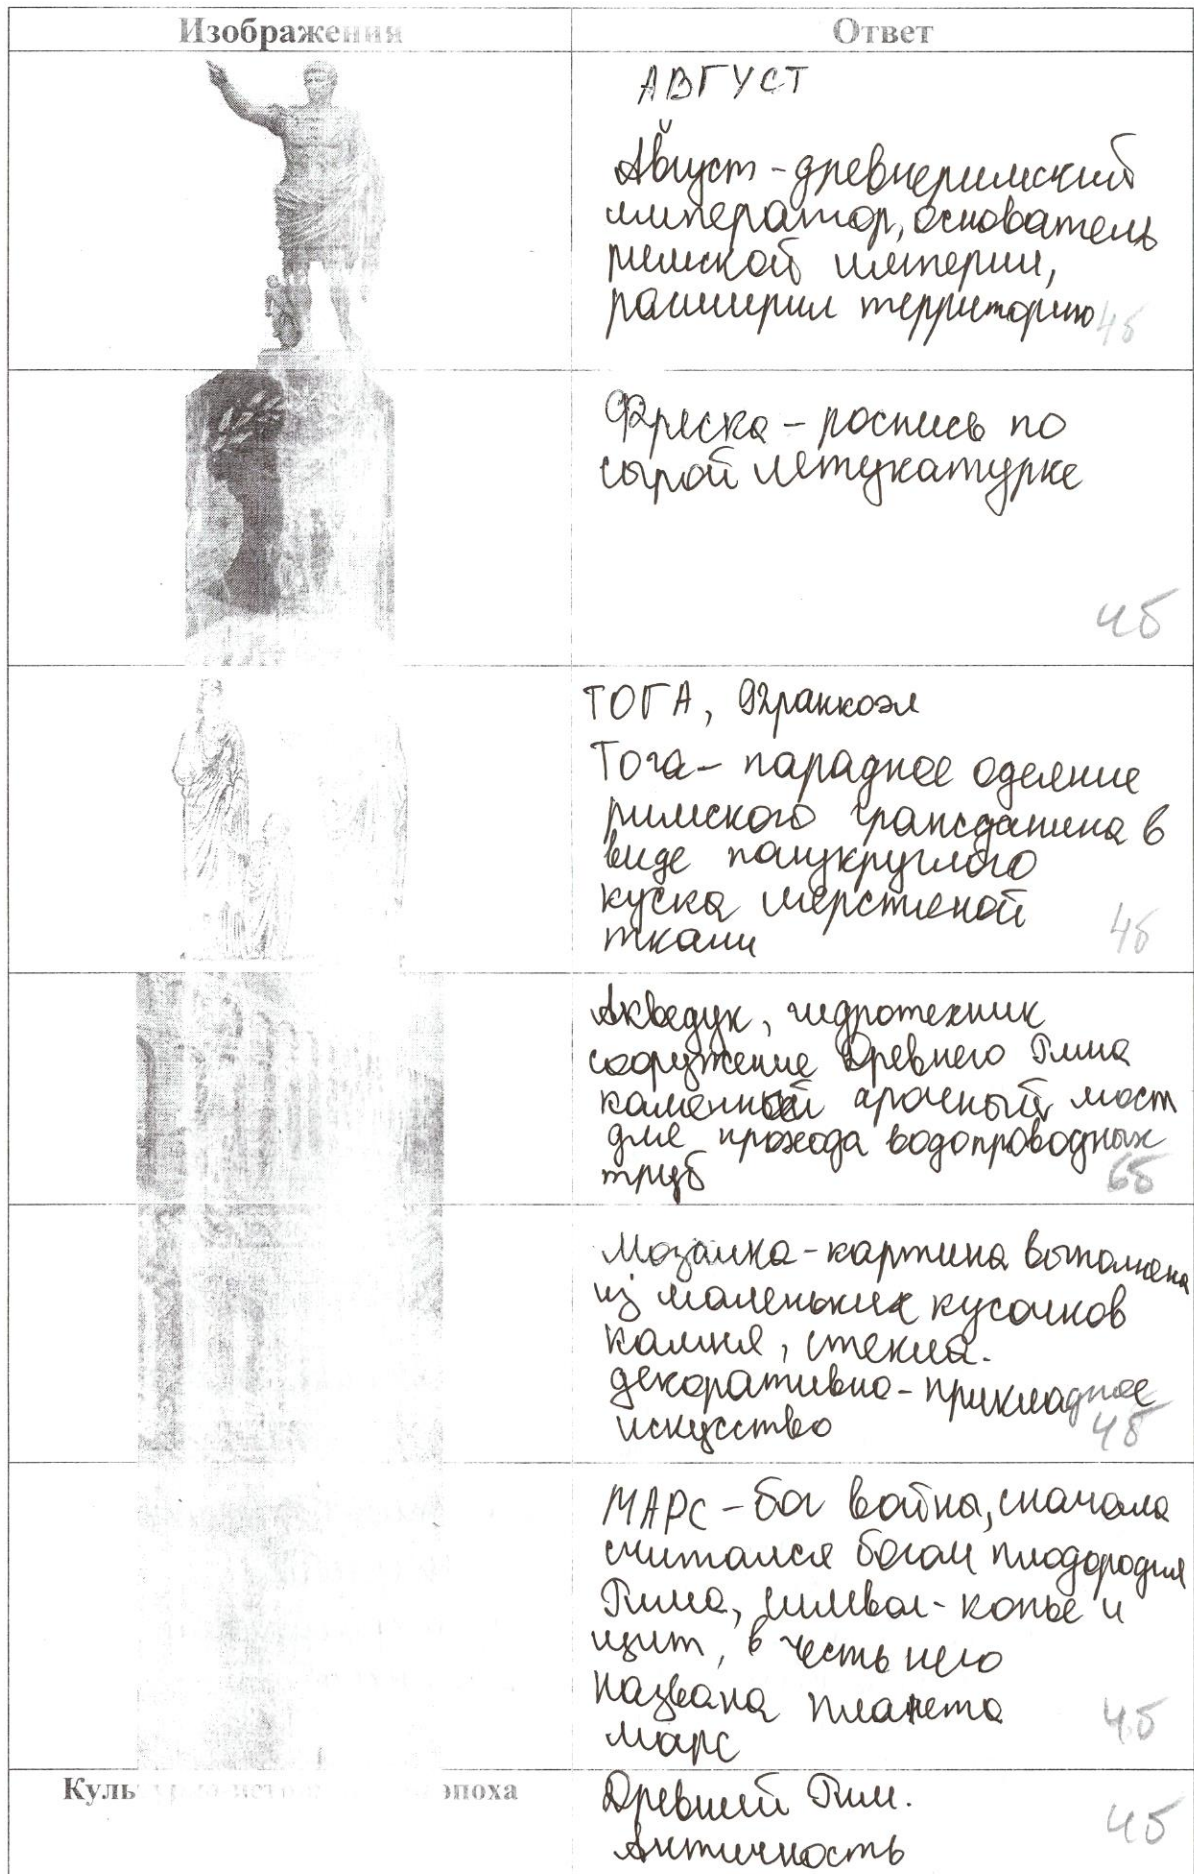 Изображения
Ответ
АВГУСТ
Август - древнеримский
император, основатель
римской империи,
расширил территорию
4б
Фреска - роспись по
сырой штукатурке
4б
ТОГА,
Тога - парадное одеяние
римского гражданина в
виде полукруглого
куска шерстеной
ткани
4б
Акведук, гидротехник
сооружение Древнего Рима
каменный арочный мост
для прохода водопроводных
труб
6б
Мозаика - картина выполнена
из маленьких кусочков
камня, стекла.
декоративно-прикладное
искусство
4б
МАРС - бог войны, сначала
считался богом плодородия
Рима, символ - копье и
щит, в честь него
названа планета
марс
4б
эпоха
Древний Рим.
Античность
4б